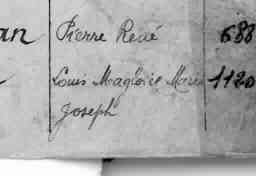 an Pierre René 688
Louis Magloire Marie 1120
Joseph